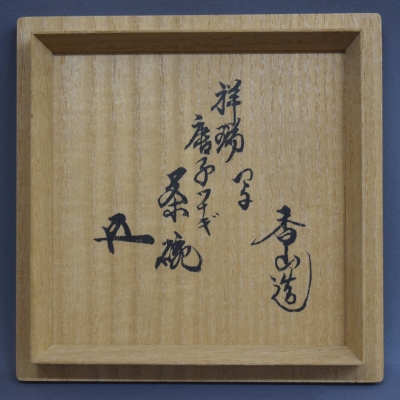 香山造
祥瑞写
唐子ツナギ
茶碗